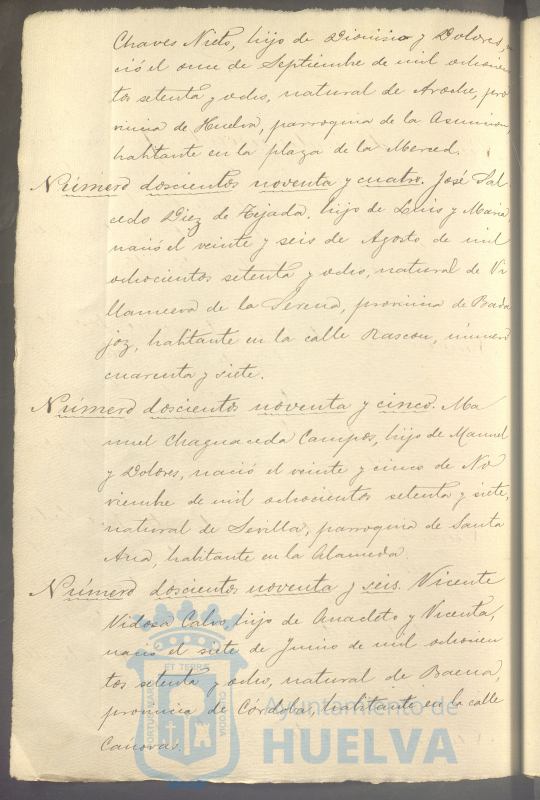 Chaves Nieto, hijo de Dionisio y Dolores, na
ció el once de Septiembre de mil ochocien
tos setenta y ocho, natural de Aroche, pro
vincia de Huelva, parroquia de la Asuncion,
habitante en la plaza de la Merced.
Número doscientos noventa y cuatro. José Sal
cedo Diez de Tejada, hijo de Luis y Maria
nació el veinte y seis de Agosto de mil
ochocientos setenta y ocho, natural de Vi
llanueva de la Serena, provincia de Bada
joz, habitante en la calle Rascon, número
cuarenta y siete.
Número doscientos noventa y cinco. Ma
nuel Chaguaceda Campos, hijo de Manuel
y Dolores, nació el veinte y cinco de No
viembre de mil ochocientos setenta y siete,
natural de Sevilla, parroquia de Santa
Ana, habitante en la Alameda.
Número doscientos noventa y seis. Vicente
Vidosa Calvo, hijo de Anacleto y Vicenta,
nació el siete de Junio de mil ochocien
tos setenta y ocho, natural de Baena,
provincia de Córdoba, habitante en la calle
Cánovas.
PORTUS MARIS ET TERRE CUSTODIA
Ayuntamiento de
HUELVA